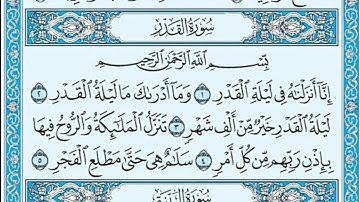 سُورَةُ القَدۡرِ
بِسۡمِ ٱللَّهِ ٱلرَّحۡمَٰنِ ٱلرَّحِيمِ
إِنَّآ أَنزَلۡنَٰهُ فِي لَيۡلَةِ ٱلۡقَدۡرِ ١ وَمَآ أَدۡرَىٰكَ مَا لَيۡلَةُ ٱلۡقَدۡرِ ٢
لَيۡلَةُ ٱلۡقَدۡرِ خَيۡرٞ مِّنۡ أَلۡفِ شَهۡرٖ ٣ تَنَزَّلُ ٱلۡمَلَٰٓئِكَةُ وَٱلرُّوحُ فِيهَا
بِإِذۡنِ رَبِّهِم مِّن كُلِّ أَمۡرٖ ٤ سَلَٰمٌ هِيَ حَتَّىٰ مَطۡلَعِ ٱلۡفَجۡرِ ٥